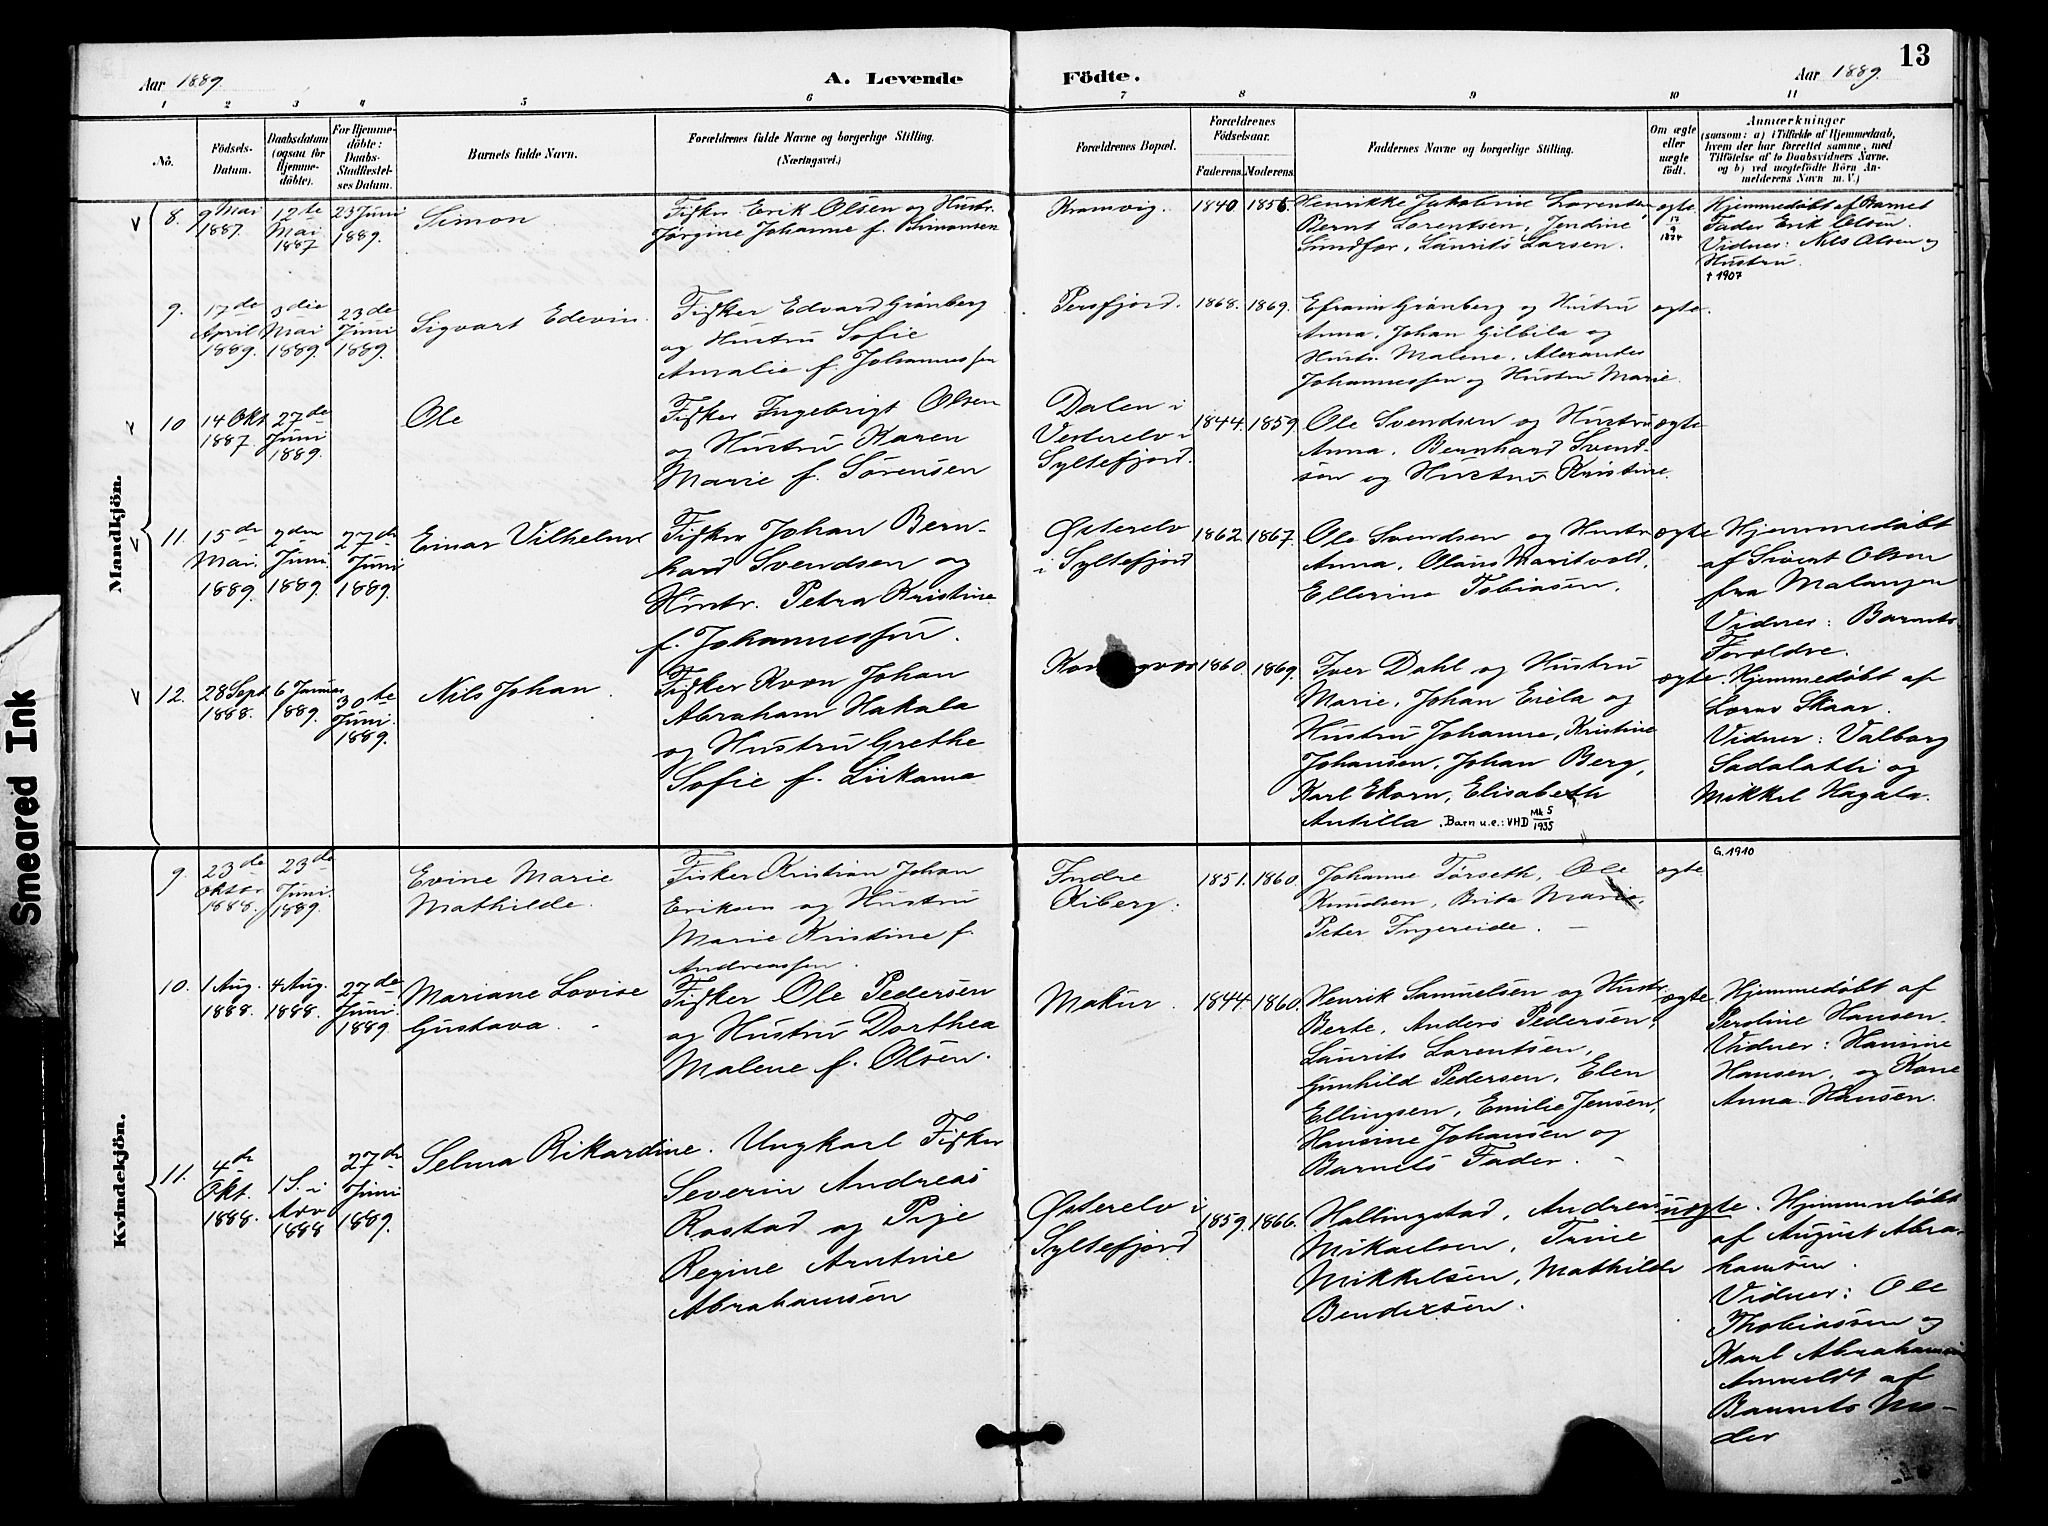 13
Aar 1889. A. Levende Födte. Aar 1889.
1 2 3 4 5 6 7 8 9 10 11
No.
Födsels-
Datum.
Daabsdatum
(ogsaa for
Hjemme-
döbte).
For Hjemme-
döbte:
Daabs-
Stadfæstel-
ses Datum.
Barnets fulde Navn.
Forældrenes fulde Navne og borgerlige Stilling.
(Næringsvei.)
Forældrenes Bopæl.
Forældrenes
Födselsaar.
Faderens. Moderens.
Faddernes Navne og borgerlige Stilling.
Om ægte
eller
uægte
født.
Anmærkninger
(saasom: a) i Tilfælde af Hjemmedaab,
hvem der har forrettet samme, med
Tilföielse af to Daabsvidners Navne,
og b) ved uægtefödte Börn An-
melderens Navn m. V.)
Mandkjön.
8.
9 Mai
1887.
12te
Mai
1887
23 Juni
1889.
Simon
Fisker Erik Olsen og Hustr.
Jørgine Johanne f. Simonsen
Kramvig.
1840
1856.
Henrikke Jakobine Lorentsen
Bernt Lorentsen, Jendine
Sundfør, Laurits Larsen.
ægte
Hjemmedøbt af Barnets
Fader Erik Olsen.
Vidner: Nils Olsen og
Hustru.
† 1907
9.
17de
April
1889.
3die
Mai
1889.
23de
Juni
1889.
Sigvart Edevin
Fisker Edvard Grønberg
og Hustru Sofie
Amalie f. Johannessen
Persfjord.
1868.
1869.
Efraim Grønberg og Hustru
Anna, Johan Gilbila og
Hustr. Malene, Alexander
Johannessen og Hustru Marie.
ægte.
10
14 Okt.
1887.
27de
Juni
1889.
Ole
Fisker Ingebrigt Olsen
og Hustru Karen
Marie f. Sørensen
Dalen i
Vesterelv i
Syltefjord.
1844.
1859.
Ole Svendsen og Hustru
Anna, Bernhard Svend-
sen og Hustru Kristine.
ægte
11.
15de
Mai
1889.
2den
Juni
1889.
27de
Juni
1889.
Einar Vilhelm
Fisker Johan Bern-
hard Svendsen og
Hustr. Petra Kristine
f. Johannessen.
Østerelv
i Syltefjord
1862
1867.
Ole Svendsen og Hustr.
Anna, Olaus Maritvold,
Ellerine Tobiasen.
ægte
Hjemmedøbt
af Sivert Olsen
fra Malangen
Vidner: Barnets
Forældre.
12.
28 Sept.
1888.
6 Januar
1889.
30te
Juni
1889.
Nils Johan.
Fisker Kvæn Johan
Abraham Hakala
og Hustru Grethe
Sofie f. Liikama
1860.
1869.
Iver Dahl og Hustru
Marie, Johan Eriela og
Hustru Johanne, Kristine
Johansen, Johan Berg,
Karl Ekorn, Elisabeth
Antilla. Barn u.e.: VHD Mk 5/1935
ægte.
Hjemmedøbt af
Lorns Skaar.
Vidner: Valborg
Sadalahti og
Mikkel Hagala.
Kvindekjön.
9.
23de
Oktbr
1888.
23de
Juni
1889.
Evine Marie
Mathilde.
Fisker Kristian Johan
Eriksen og Hustru
Marie Kristine f.
Andreassen.
Indre
Kiberg.
1851.
1860.
Johanne Tørseth, Ole
Knudsen, Brita Marie,
Peter Ingereide.
ægte
G. 1910
10.
1 Aug.
1888.
4 Aug.
1888.
27de
Juni
1889.
Mariane Lovise
Gustava.
Fisker Ole Pedersen
og Hustru Dorthea
Malene f. Olsen.
Makur.
1844.
1860.
Henrik Samuelsen og Hustr.
Berte, Anders Pedersen,
Laurits Lorentsen,
Gunhild Pedersen, Elen
Ellingsen, Emilie Jensen,
Hansine Johansen og
Barnets Fader.
ægte
Hjemmedøbt af
Peroline Hansen.
Vidner: Hansine
Hansen, og Kone
Anna Hansen.
11.
4de
Okt.
1888.
1 S. i
Adv
1888
27de
Juni
1889.
Selma Rikardine.
Ungkarl Fisker
Severin Andreas
Rostad og Pige
Regine Arntine
Abrahamsen
Østerelv i
Syltefjord
1859.
1866.
Hallingstad, Andreas
Mikaelsen, Trine
Mikkelsen, Mathilde
Bendixsen.
uægte.
Hjemmedøbt
af August Abra-
hamsen.
Vidner: Ole
Thobiassen og
Karl Abrahamsen
Anmeldt af
Barnets Mo-
der
Smeared Ink